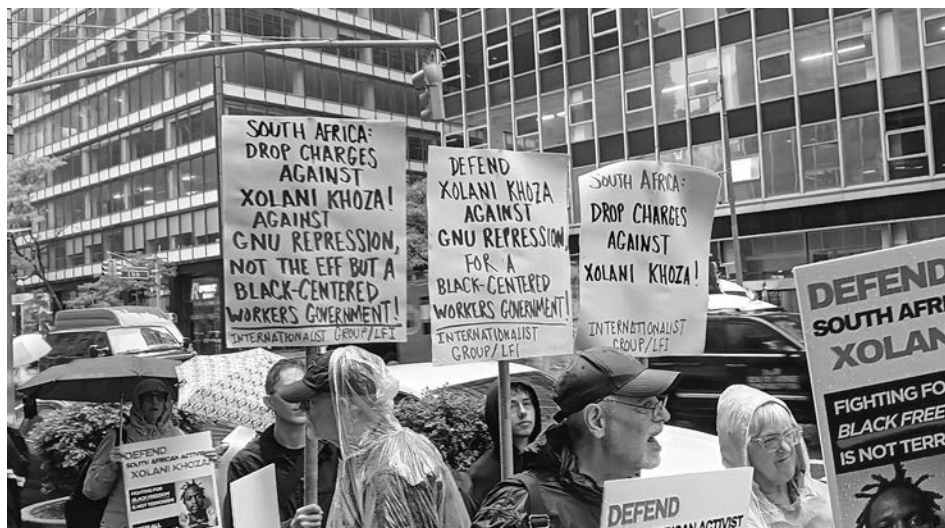 SOUTH AFRICA:
DROP CHARGES
AGAINST
XOLANI KHOZA!
AGAINST
GNU REPRESSION,
NOT THE EFF BUT A
BLACK-CENTERED
WORKERS GOVERNMENT!
INTERNATIONALIST GROUP/LFI
DEFEND
XOLANI KHOZA
AGAINST
GNU REPRESSION,
FOR A
BLACK-CENTERED
WORKERS GOVERNMENT!
INTERNATIONALIST
GROUP/LFI
SOUTH AFRICA:
DROP CHARGES
AGAINST
XOLANI KHOZA!
INTERNATIONALIST
GROUP/LFI
DEFEND
SOUTH AFRI
XOLAN
FIGHTING FO
BLACK FREE
IS NOT TERR
DEFEND
SOUTH AFRICAN ACTIVIS
XOLANI KHOZA
FIGHTING FOR
BLACK FREEDOM
IS NOT TERRORISM
DEFEND
ICAN ACTIVIST